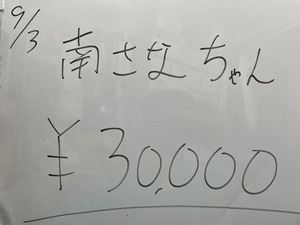 9/3
南さなちゃん
¥30,000